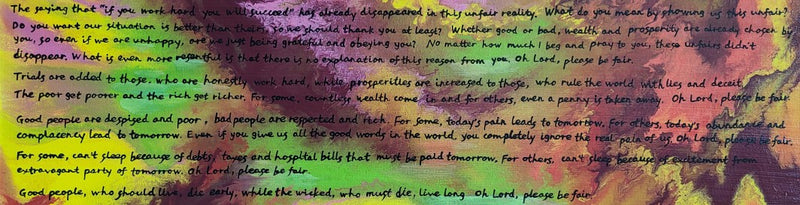 The saying that "if you work hard you will succeed" has already disappeared in this unfair reality. What do you mean by showing us this unfair?
Do you want our situation is better than theirs, so we should thank you at least? Whether good or bad, wealth and prosperity are already chosen by
you, so even if we are unhappy, are we just being grateful and obeying you? No matter how much I beg and pray to you, these unfairs didn't
disappear. What is even more resentful is that there is no explanation of this reason from you. Oh Lord, please be fair.
Trials are added to those, who are honestly work hard, while prosperities are increased to those, who rule the world with lies and deceit.
The poor got poorer and the rich got richer. For some, countless wealth come in and for others, even a penny is taken away. Oh Lord, please be fair.
Good people are despised and poor, bad people are respected and rich. For some, today's pain leads to tomorrow. For others, today's abundance and
complacency lead to tomorrow. Even if you give us all the good words in the world, you completely ignore the real pain of us. Oh Lord, please be fair.
For some, can't sleep because of debts, taxes and hospital bills that must be paid tomorrow. For others, can't sleep because of excitement from
extravagant party of tomorrow. Oh Lord, please be fair.
Good people, who should live, die early, while the wicked, who must die, live long. Oh Lord, please be fair.